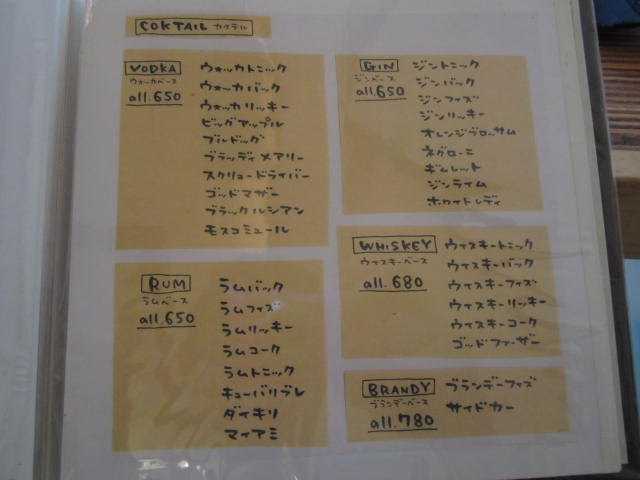 COKTAIL カクテル
VODKA
ウォッカベース
all.650
ウォッカトニック
ウォッカバック
ウォッカリッキー
ビッグアップル
ブルドッグ
ブラッディメアリー
スクリュードライバー
ゴッドマザー
ブラックルシアン
モスコミュール
GIN
ジンベース
all.650
ジントニック
ジンバック
ジンフィズ
ジンリッキー
オレンジブロッサム
ネグローニ
ギムレット
ジンライム
ホワイトレディ
RUM
ラムベース
all.650
ラムバック
ラムフィズ
ラムリッキー
ラムコーク
ラムトニック
キューバリブレ
ダイキリ
マイアミ
WHISKEY
ウィスキーベース
all.680
ウィスキートニック
ウィスキーバック
ウィスキーフィズ
ウィスキーリッキー
ウィスキーコーク
ゴッドファーザー
BRANDY
ブランデーベース
all.780
ブランデーフィズ
サイドカー